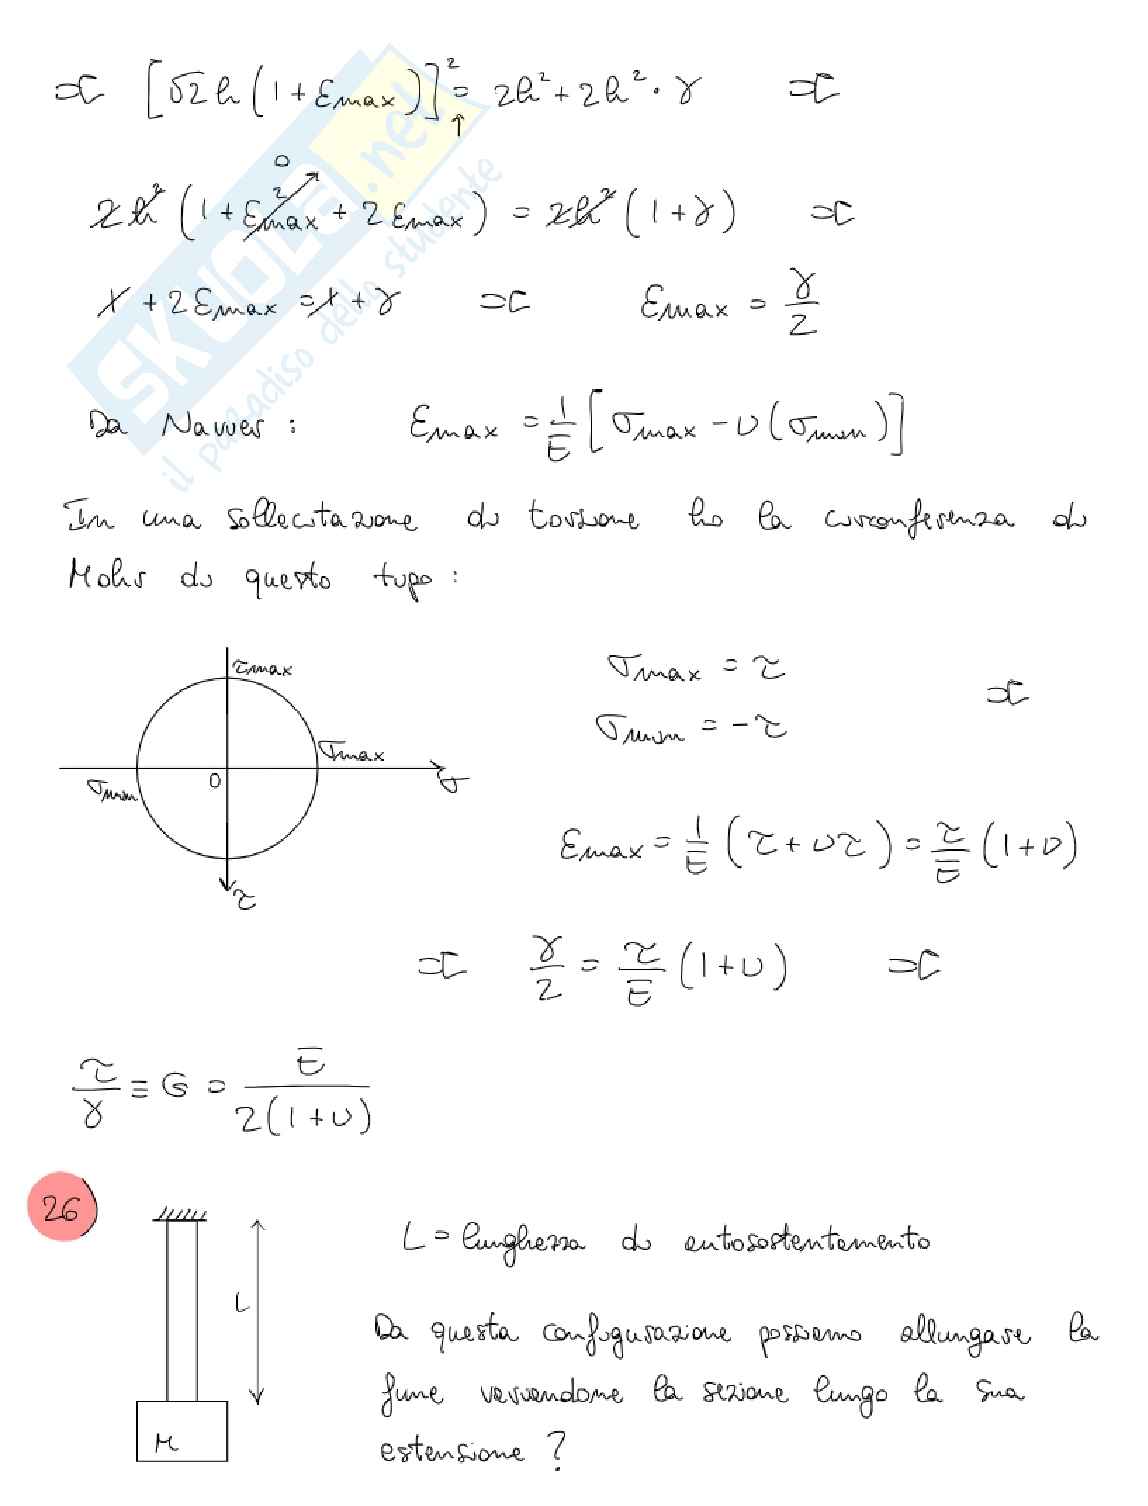 => [√2 h (1 + εmax)]² = 2h² + 2h² · γ =>
↑
0
2h² (1 + ε²max + 2 εmax) = 2h² (1 + γ) =>
1 + 2 εmax = 1 + γ => εmax = γ/2
Da Navier : εmax = 1/E [σmax - ν (σmin)]
In una sollecitazione di torsione ho la circonferenza di
Mohr di questo tipo :
τmax
σmax
σmin
0
σ
τ
σmax = τ
σmin = -τ =>
εmax = 1/E (τ + ντ) = τ/E (1 + ν)
=> γ/2 = τ/E (1 + ν) =>
τ/γ ≡ G = E/2(1 + ν)
26
L
M
L = lunghezza di autosostentamento
Da questa configurazione possiamo allungare la
fune variandone la sezione lungo la sua
estensione ?
SKUOLA.net
il paradiso dello studente